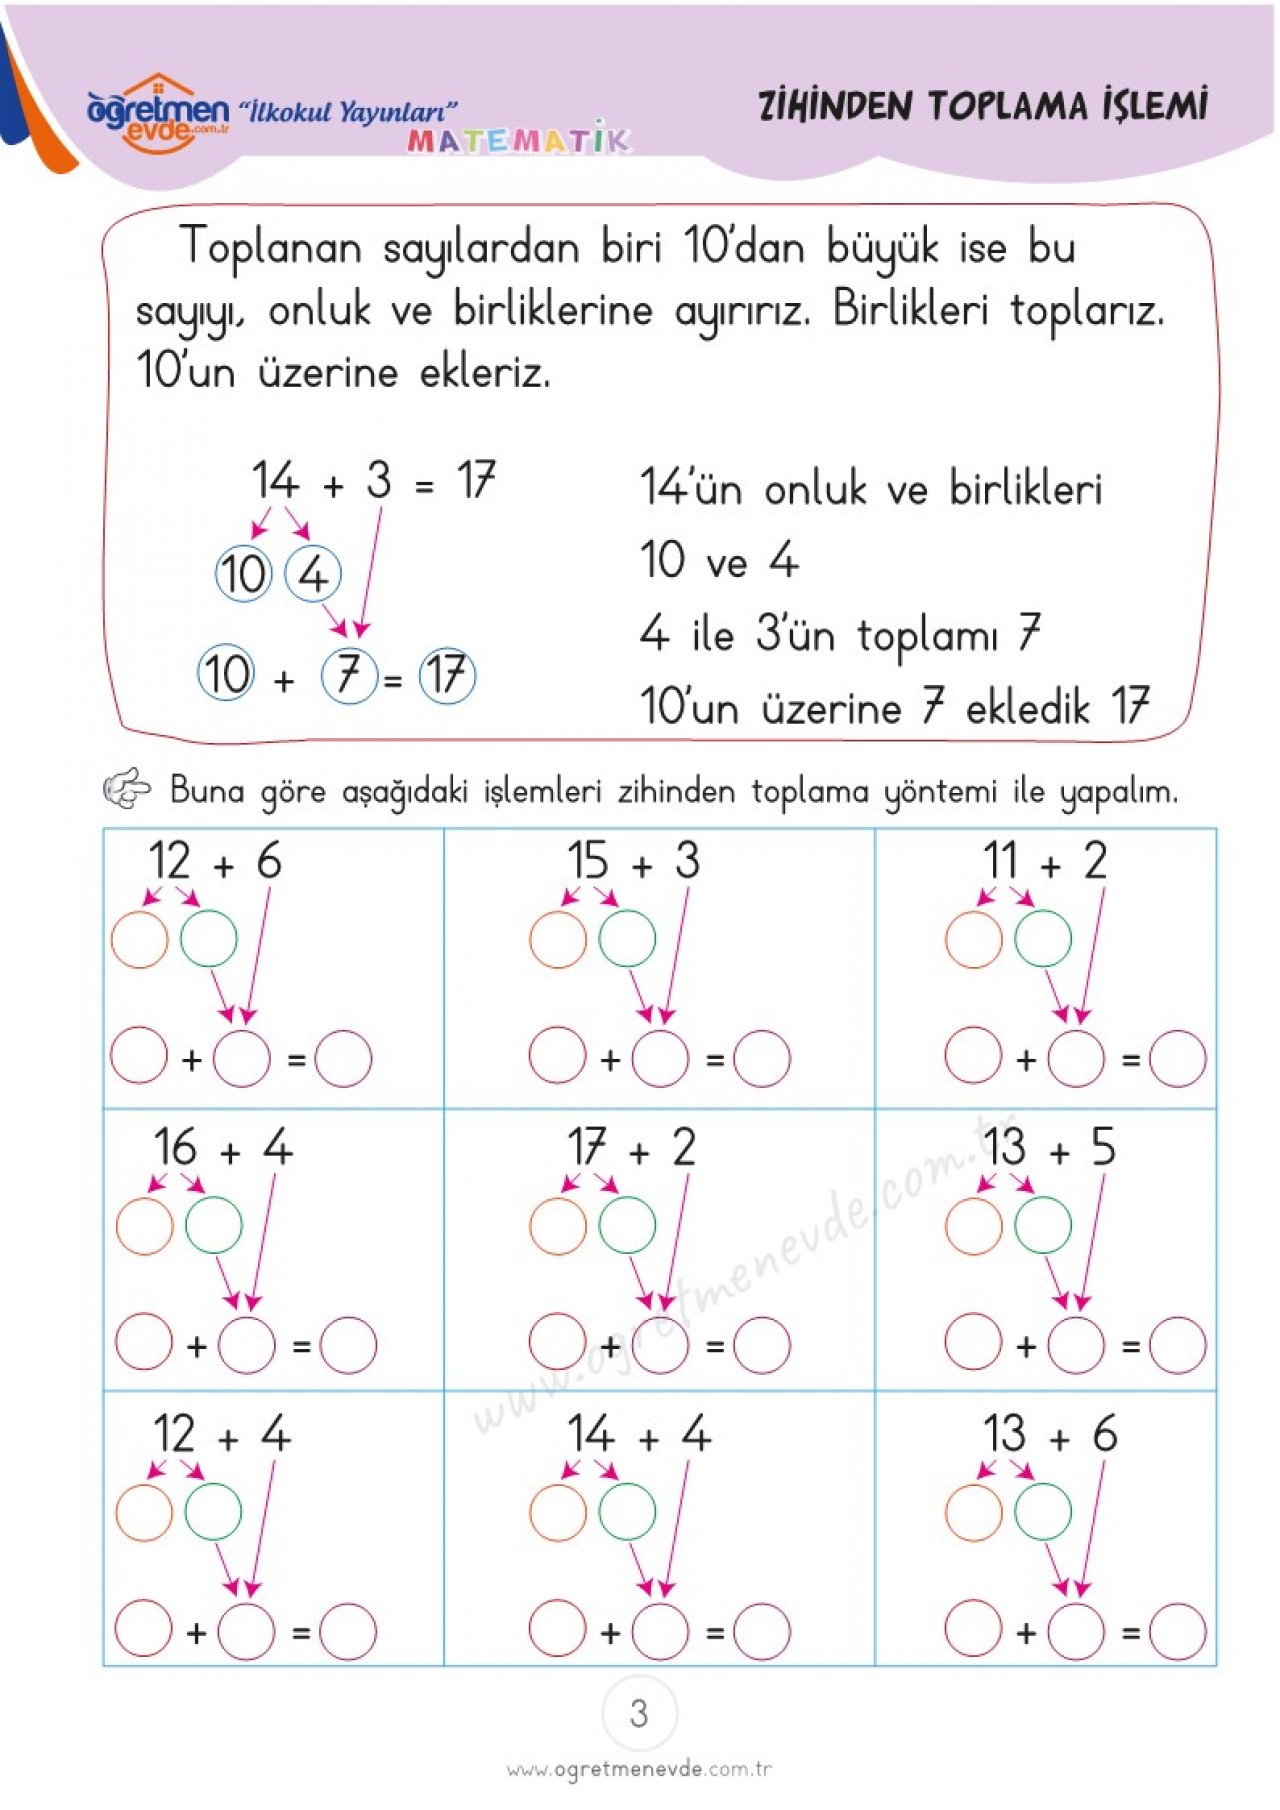 öğretmen
evde.com.tr
“İlkokul Yayınları”
MATEMATİK
ZİHİNDEN TOPLAMA İŞLEMİ
Toplanan sayılardan biri 10'dan büyük ise bu
sayıyı, onluk ve birliklerine ayırırız. Birlikleri toplarız.
10'un üzerine ekleriz.
14 + 3 = 17
10 4
10 + 7 = 17
14'ün onluk ve birlikleri
10 ve 4
4 ile 3'ün toplamı 7
10'un üzerine 7 ekledik 17
Buna göre aşağıdaki işlemleri zihinden toplama yöntemi ile yapalım.
12 + 6
+ =
15 + 3
+ =
11 + 2
+ =
16 + 4
+ =
17 + 2
+ =
13 + 5
+ =
12 + 4
+ =
14 + 4
+ =
13 + 6
+ =
www.ogretmenevde.com.tr
3
www.ogretmenevde.com.tr